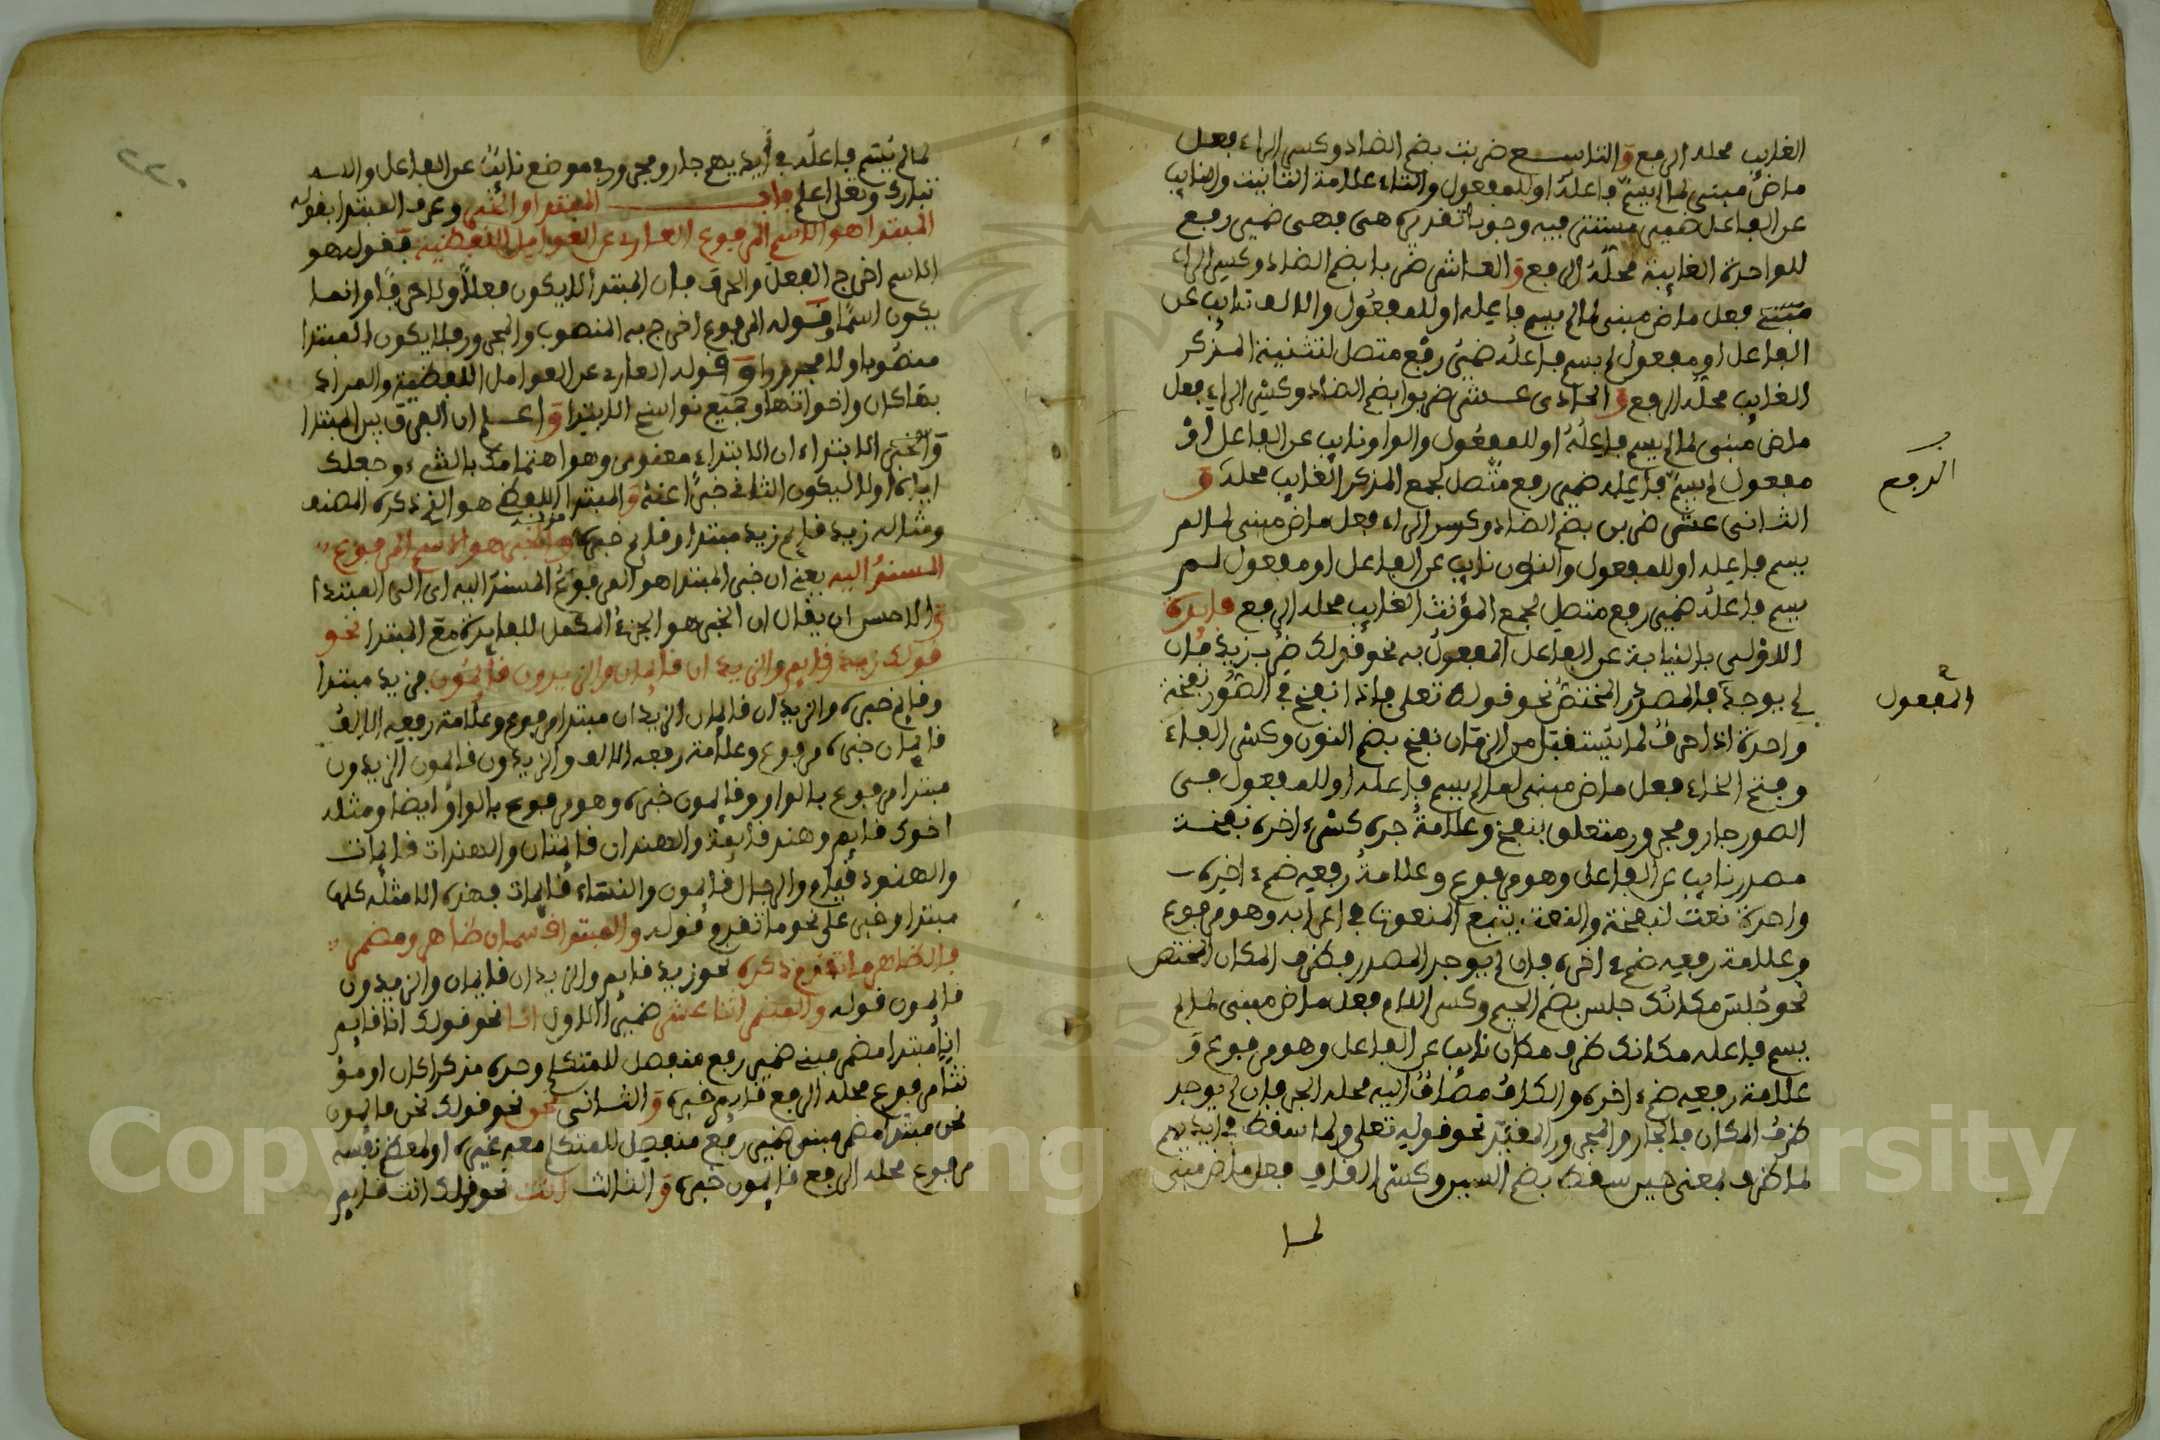 الغايب محله الرفع والتاسع ضربت بضم الضاد وكسر الراء فعل
ماض مبنى لما لم يسم فاعله او للمفعول والتاء علامة التانيث والنايب
عن الفاعل ضمير مستتر فيه وجوبا تقديره هى فهى ضمير رفع
للواحدة الغايبة محله الرفع والعاشر ضربا بضم الضاد وكسر الراء
فعل ماض مبنى لما لم يسم فاعله او للمفعول والالف نايب عن
الفاعل او مفعول لم يسم فاعله ضمير رفع متصل لتثنية المذكر
الغايب محله الرفع والحادى عشر ضربوا بضم الضاد وكسر الراء فعل
ماض مبنى لما لم يسم فاعله او للمفعول والواو نايب عن الفاعل او
مفعول لم يسم فاعله ضمير رفع متصل لجمع المذكر الغايب محله و
الرفع
الثانى عشر ضربن بضم الضاد وكسر الراء فعل ماض مبنى لما لم
يسم فاعله او للمفعول والنون نايب عن الفاعل او مفعول لم
يسم فاعله ضمير رفع متصل لجمع المؤنث الغايب محله الرفع فايدة
الاولى بالنيابة عن الفاعل المفعول به نحو قولك ضرب زيد فان
المفعول
لم يوجد فالمصدر المختص نحو قوله تعلى فاذا نفخ فى الصور نفخة
واحدة اذا حرف لما يستقبل من الزمان نفخ بضم النون وكسر الفاء
وفتح الخاء فعل ماض مبنى لما لم يسم فاعله او للمفعول فى
الصور جار ومجرور متعلق بنفخ وعلامة جره كسرة اخره نفخة
مصدر نايب عن الفاعل وهو مرفوع وعلامة رفعه ضمة اخيره
واحدة نعت لنفخة والنعت يتبع المنعوت فى اعرابه وهو مرفوع
وعلامة رفعه ضمة اخره فان لم يوجد المصدر فظرف المكان المختص
نحو جلس مكانك جلس بضم الجيم وكسر اللام فعل ماض مبنى لما لم
يسم فاعله مكانك ظرف مكان نايب عن الفاعل وهو مرفوع و
علامة رفعه ضمة اخره والكاف مضاف اليه محله الجر فان لم يوجد
ظرف المكان فالجار والمجرور المقيد نحو قوله تعلى ولما سقط فى ايديهم
لما ظرف بمعنى حين سقط بضم السين وكسر القاف فعل ماض مبنى
لما
لما لم يسم فاعله فى ايديهم جار ومجرور فى موضع نايب عن الفاعل والله
تبارك وتعلى اعلم باب المبتدا والخبر وعرف المبتدا بقوله
المبتدا هو الاسم المرفوع العارى عن العوامل اللفظية فقوله هو
الاسم اخرج الفعل والحرف فان المبتدا لا يكون فعلا ولا حرفا وانما
يكون اسما وقوله المرفوع اخرج به المنصوب والمجرور فلا يكون المبتدا
منصوبا ولا مجرورا وقوله العارى عن العوامل اللفظية والمراد
بها كان واخواتها وجميع نواسخ الابتدا واعلم ان الفرق بين المبتدا
والخبر الابتداء ان الابتداء معنوى وهو اهتمامك بالشىء وجعلك
اياه اولا ليكون الثانى خبرا عنه والمبتدا اللفظى هو الذى ذكره المصنف
ومثاله زيد قايم زيد مبتدا وقايم خبره والخبر هو الاسم المرفوع
المسند اليه يعنى ان خبر المبتدا هو المرفوع المسند اليه اى الى المبتدا
والاحسن ان يقال ان الخبر هو الجزء المكمل للفايدة مع المبتدا نحو
قولك زيد قايم والزيدان قايمان والزيدون قايمون فزيد مبتدا
وقايم خبره والزيدان قايمان الزيدان مبتدا مرفوع وعلامة رفعه الالف
قايمان خبره مرفوع وعلامة رفعه الالف والزيدون قايمون الزيدون
مبتدا مرفوع بالواو وقايمون خبره وهو مرفوع بالواو ايضا ومثله
اخوك قايم وهند قايمة والهندان قايمتان والهندات قايمات
والهنود قيام والرجال قايمون والنساء قايمات فهذه الامثلة كلها
مبتدا وخبر على نحو ما تقدم قوله والمبتدا قسمان ظاهر ومضمر
فالظاهر ما تقدم ذكره نحو زيد قايم والزيدان قايمان والزيدون
قايمون قوله والمضمر اثنا عشر ضمير الاول انا نحو قولك انا قايم
انا مبتدا مضمر مبنى ضمير رفع منفصل للمتكلم وحده مذكرا كان او مؤ
نثا مرفوع محله الرفع قايم خبره والثانى نحن نحو قولك نحن قايمون
نحن مبتدا مضمر مبنى ضمير رفع منفصل للمتكلم معه غيره او لمعظم نفسه
مرفوع محله الرفع قايمون خبره والثالث انت نحو قولك انت قايم
Copyright © King Saud University